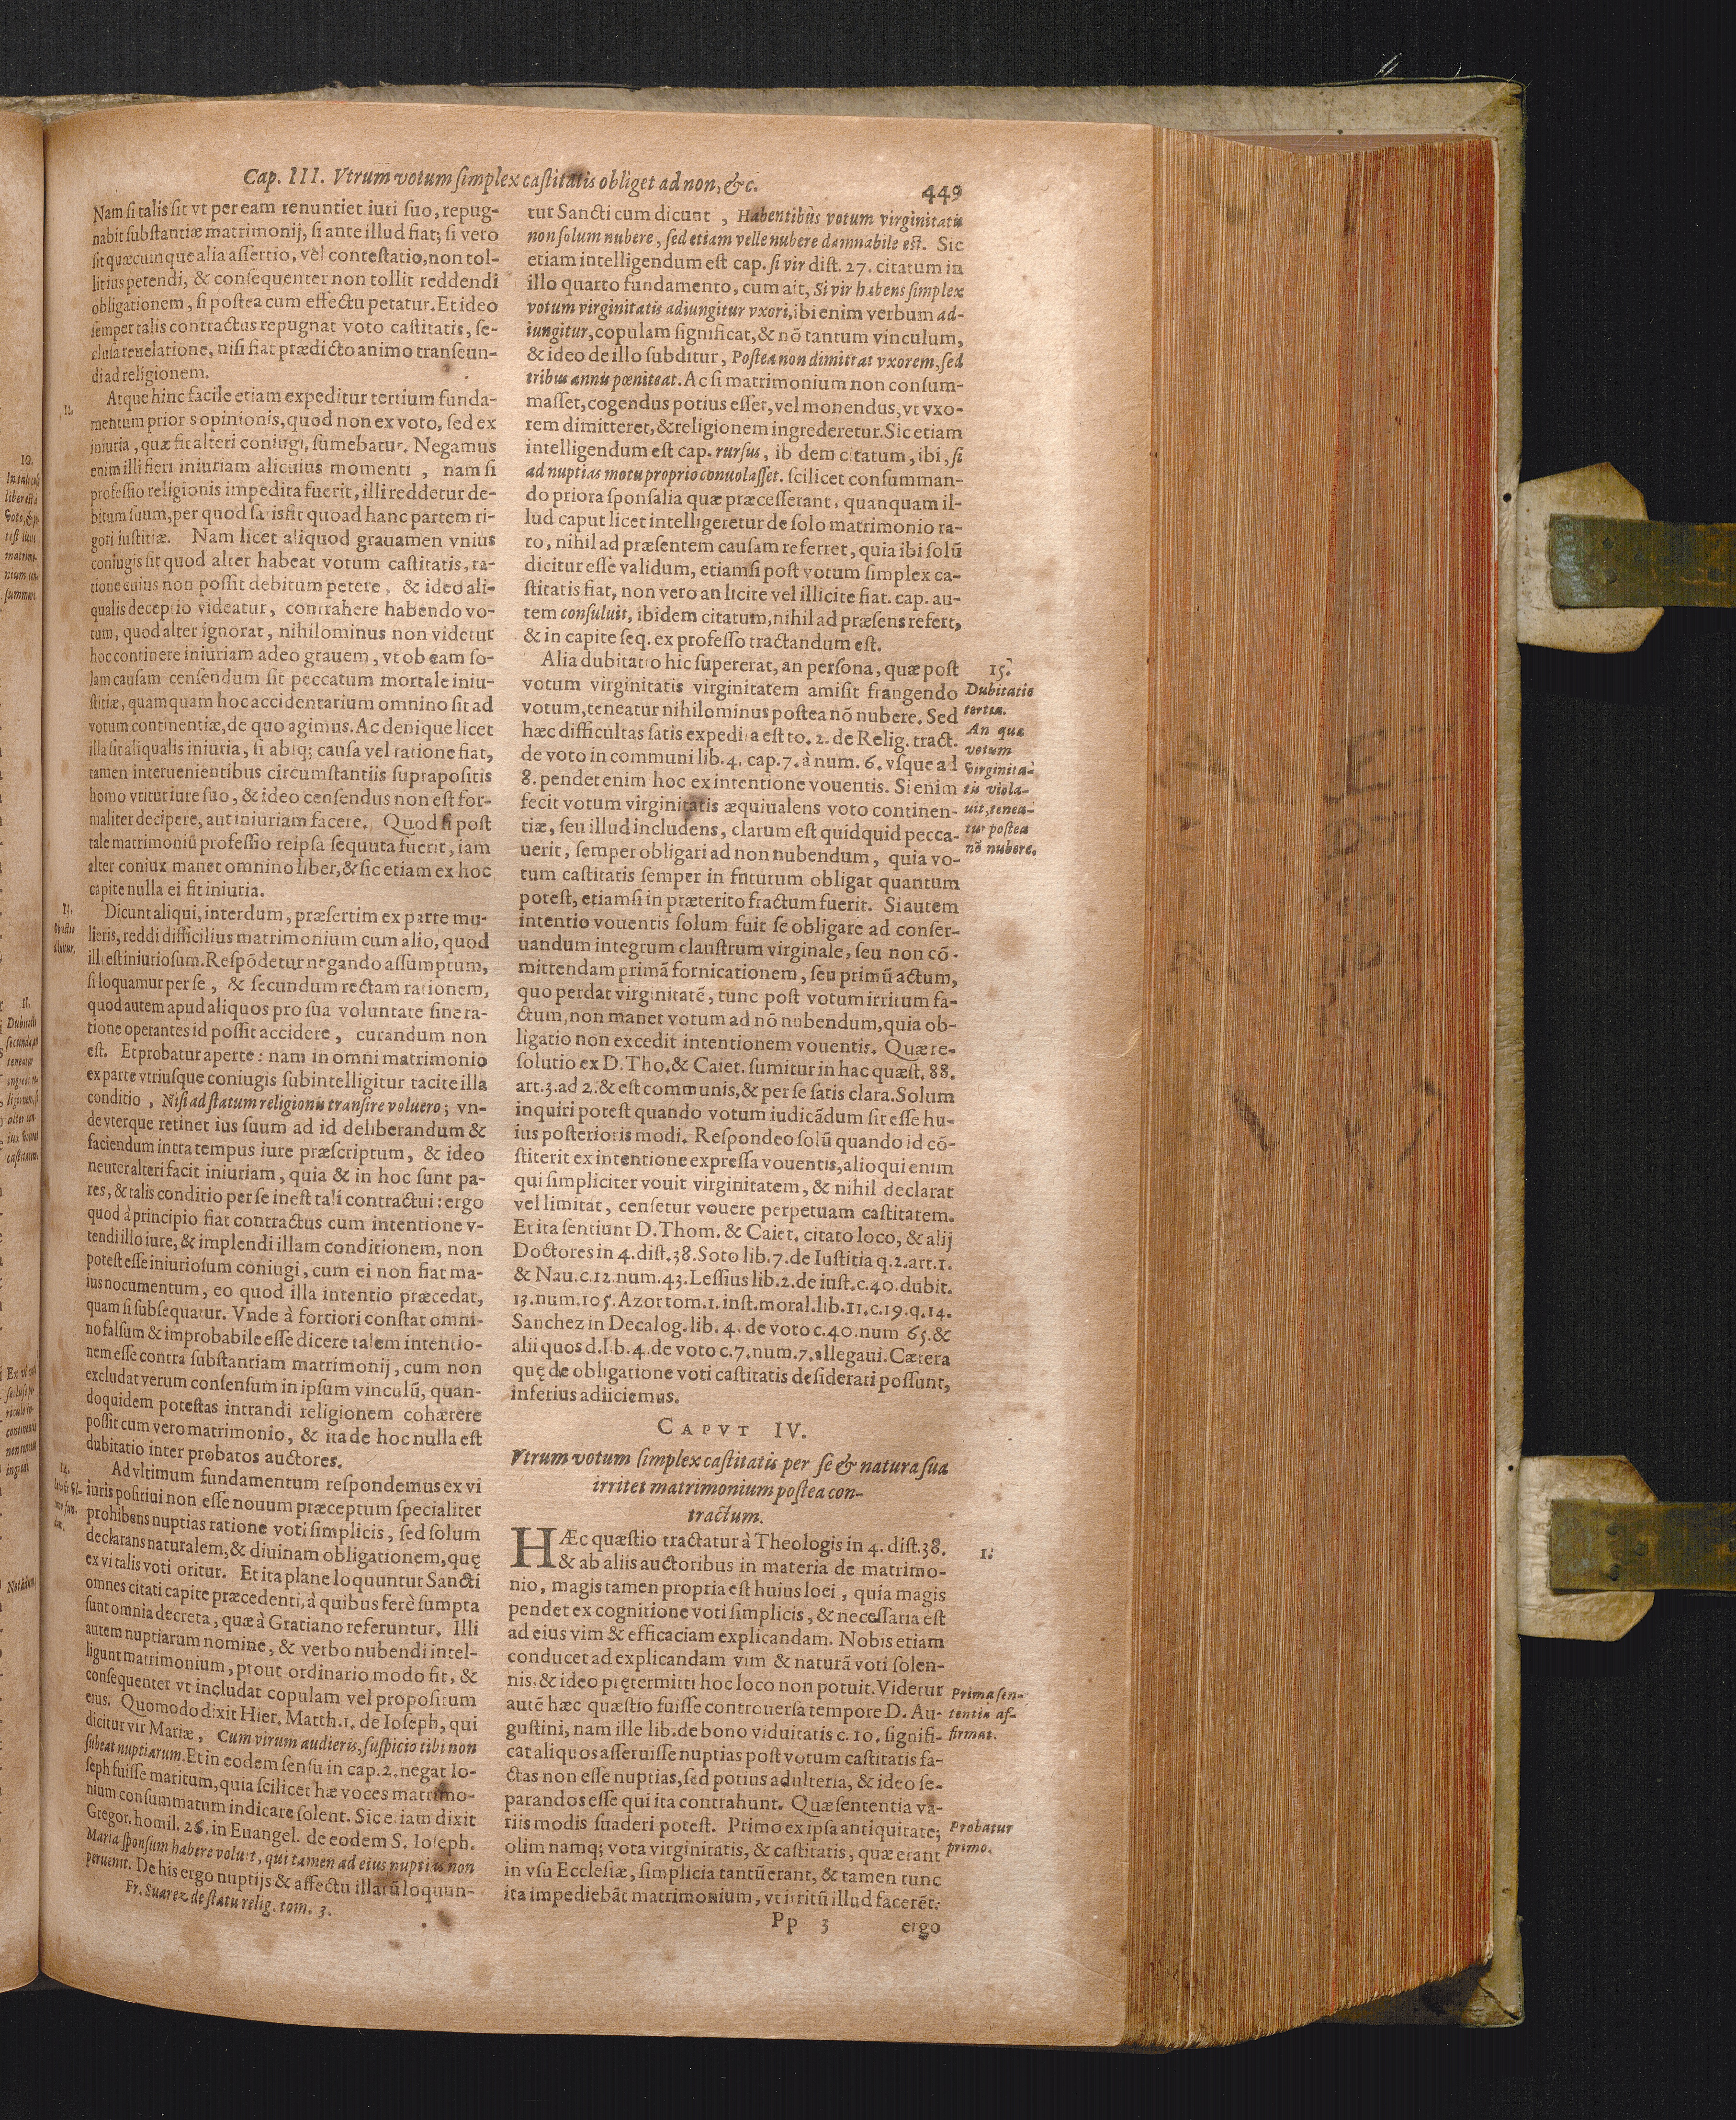 Cap. III. Vtrum votum ſimplex caſtitatis obliget ad non, &c.
449
Nam ſi talis ſit vt per eam renuntiet iuri ſuo, repug-
nabit ſubſtantiæ matrimonij, ſi ante illud fiat; ſi vero
ſit quæcumque alia aſſertio, vel conteſtatio, non tol-
lit ius petendi, & conſequenter non tollit reddendi
obligationem, ſi poſtea cum effectu petatur. Et ideo
ſemper talis contractus repugnat voto caſtitatis, ſe-
cluſa reuelatione, niſi fiat prædicto animo tranſeun-
di ad religionem.
12.
Atque hinc facile etiam expeditur tertium funda-
mentum prior s opinionis, quod non ex voto, ſed ex
iniuria, quæ fit alteri coniugi, ſumebatur. Negamus
enim illi fieri iniuriam alicuius momenti, nam ſi
profeſſio religionis impedita fuerit, illi reddetur de-
bitum ſuum, per quod ſatisfit quoad hanc partem ri-
gori iuſtitiæ. Nam licet aliquod grauamen vnius
coniugis ſit quod alter habeat votum caſtitatis, ra-
tione cuius non poſſit debitum petere, & ideo ali-
qualis deceptio videatur, contrahere habendo vo-
tum, quod alter ignorat, nihilominus non videtur
hoc continere iniuriam adeo grauem, vt ob eam ſo-
lam cauſam cenſendum ſit peccatum mortale iniu-
ſtitiæ, quamquam hoc accidentarium omnino ſit ad
votum continentiæ, de quo agimus. Ac denique licet
illa ſit aliqualis iniuria, ſi abſq; cauſa vel ratione fiat,
tamen interuenientibus circumſtantiis ſuprapoſitis
homo vtitur iure ſuo, & ideo cenſendus non eſt for-
maliter decipere, aut iniuriam facere. Quod ſi poſt
tale matrimoniũ profeſſio reipſa ſequuta fuerit, iam
alter coniux manet omnino liber, & ſic etiam ex hoc
capite nulla ei fit iniuria.
13.
Dicunt aliqui, interdum, præſertim ex parte mu-
lieris, reddi difficilius matrimonium cum alio, quod
illi eſt iniurioſum. Reſpõdetur negando aſſumptum,
ſi loquamur per ſe, & ſecundum rectam rationem,
quod autem apud aliquos pro ſua voluntate ſine ra-
tione operantes id poſſit accidere, curandum non
eſt. Et probatur aperte: nam in omni matrimonio
ex parte vtriuſque coniugis ſubintelligitur tacite illa
conditio, Niſi ad ſtatum religionis tranſire voluero; vn-
de vterque retinet ius ſuum ad id deliberandum &
faciendum intra tempus iure præſcriptum, & ideo
neuter alteri facit iniuriam, quia & in hoc ſunt pa-
res, & talis conditio per ſe ineſt tali contractui: ergo
quod à principio fiat contractus cum intentione v-
tendi illo iure, & implendi illam conditionem, non
poteſt eſſe iniurioſum coniugi, cum ei non fiat ma-
ius nocumentum, eo quod illa intentio præcedat,
quam ſi ſubſequatur. Vnde à fortiori conſtat omni-
no falſum & improbabile eſſe dicere talem intentio-
nem eſſe contra ſubſtantiam matrimonij, cum non
excludat verum conſenſum in ipſum vinculũ, quan-
doquidem poteſtas intrandi religionem cohærere
poſſit cum vero matrimonio, & ita de hoc nulla eſt
dubitatio inter probatos auctores.
14.
Ad vltimum fundamentum reſpondemus ex vi
iuris poſitiui non eſſe nouum præceptum ſpecialiter
prohibens nuptias ratione voti ſimplicis, ſed ſolum
declarans naturalem, & diuinam obligationem, quę
ex vi talis voti oritur. Et ita plane loquuntur Sancti
omnes citati capite præcedenti, à quibus ferè ſumpta
ſunt omnia decreta, quæ à Gratiano referuntur. Illi
autem nuptiarum nomine, & verbo nubendi intel-
ligunt matrimonium, prout ordinario modo fit, &
conſequenter vt includat copulam vel propoſitum
eius. Quomodo dixit Hier. Matth. 1. de Ioſeph, qui
dicitur vir Mariæ, Cum virum audieris, ſuſpicio tibi non
ſubeat nuptiarum. Et in eodem ſenſu in cap. 2. negat Io-
ſeph fuiſſe maritum, quia ſcilicet hæ voces matrimo-
nium conſummatum indicare ſolent. Sic etiam dixit
Gregor. homil. 26. in Euangel. de eodem S. Ioſeph.
Maria ſponſum habere voluit, qui tamen ad eius nuptias non
peruenit. De his ergo nuptijs & affectu illarũ loquun-
Fr. Suarez de ſtatu relig. tom. 3.
tur Sancti cum dicunt, Habentibus votum virginitatis
non ſolum nubere, ſed etiam velle nubere damnabile eſt. Sic
etiam intelligendum eſt cap. ſi vir diſt. 27. citatum in
illo quarto fundamento, cum ait, Si vir habens ſimplex
votum virginitatis adiungitur vxori, ibi enim verbum ad-
iungitur, copulam ſignificat, & nõ tantum vinculum,
& ideo de illo ſubditur, Poſtea non dimittat vxorem, ſed
tribus annis pœniteat. Ac ſi matrimonium non conſum-
maſſet, cogendus potius eſſet, vel monendus, vt vxo-
rem dimitteret, & religionem ingrederetur. Sic etiam
intelligendum eſt cap. rurſus, ib dem citatum, ibi, ſi
ad nuptias motu proprio conuolaſſet. ſcilicet conſumman-
do priora ſponſalia quæ præceſſerant, quanquam il-
lud caput licet intelligeretur de ſolo matrimonio ra-
to, nihil ad præſentem cauſam referret, quia ibi ſolũ
dicitur eſſe validum, etiamſi poſt votum ſimplex ca-
ſtitatis fiat, non vero an licite vel illicite fiat. cap. au-
tem conſuluit, ibidem citatum, nihil ad præſens refert,
& in capite ſeq. ex profeſſo tractandum eſt.
Alia dubitatio hic ſupererat, an perſona, quæ poſt
votum virginitatis virginitatem amiſit frangendo
votum, teneatur nihilominus poſtea nõ nubere. Sed
hæc difficultas ſatis expedita eſt to. 2. de Relig. tract.
de voto in communi lib. 4. cap. 7. à num. 6. vſque ad
8. pendet enim hoc ex intentione vouentis. Si enim
fecit votum virginitatis æquiualens voto continen-
tiæ, ſeu illud includens, clarum eſt quidquid pecca-
uerit, ſemper obligari ad non nubendum, quia vo-
tum caſtitatis ſemper in futurum obligat quantum
poteſt, etiamſi in præterito fractum fuerit. Si autem
intentio vouentis ſolum fuit ſe obligare ad conſer-
uandum integrum clauſtrum virginale, ſeu non cõ-
mittendam primã fornicationem, ſeu primũ actum,
quo perdat virginitatẽ, tunc poſt votum irritum fa-
ctum, non manet votum ad nõ nubendum, quia ob-
ligatio non excedit intentionem vouentis. Quæ re-
ſolutio ex D. Tho. & Caiet. ſumitur in hac quæſt. 88.
art. 3. ad 2. & eſt communis, & per ſe ſatis clara. Solum
inquiri poteſt quando votum iudicãdum ſit eſſe hu-
ius poſterioris modi. Reſpondeo ſolũ quando id cõ-
ſtiterit ex intentione expreſſa vouentis, alioqui enim
qui ſimpliciter vouit virginitatem, & nihil declarat
vel limitat, cenſetur vouere perpetuam caſtitatem.
Et ita ſentiunt D. Thom. & Caiet. citato loco, & alij
Doctores in 4. diſt. 38. Soto lib. 7. de Iuſtitia q. 2. art. 1.
& Nau. c. 12. num. 43. Leſſius lib. 2. de iuſt. c. 40. dubit.
13. num. 105. Azor tom. 1. inſt. moral. lib. 11. c. 19. q. 14.
Sanchez in Decalog. lib. 4. de voto c. 40. num 65. &
alii quos d. lib. 4. de voto c. 7. num. 7. allegaui. Cætera
quę de obligatione voti caſtitatis deſiderari poſſunt,
inferius adiiciemus.
15.
Dubitatio
tertia.
An qua
votum
virginita-
tis viola-
uit, tenea-
tur poſtea
nõ nubere.
CAPVT IV.
Vtrum votum ſimplex caſtitatis per ſe & natura ſua
irritet matrimonium poſtea con-
tractum.
HÆc quæſtio tractatur à Theologis in 4. diſt. 38.
& ab aliis auctoribus in materia de matrimo-
nio, magis tamen propria eſt huius loci, quia magis
pendet ex cognitione voti ſimplicis, & neceſſaria eſt
ad eius vim & efficaciam explicandam. Nobis etiam
conducet ad explicandam vim & naturã voti ſolen-
nis, & ideo prętermitti hoc loco non potuit. Videtur
autẽ hæc quæſtio fuiſſe controuerſa tempore D. Au-
guſtini, nam ille lib. de bono viduitatis c. 10. ſignifi-
cat aliquos aſſeruiſſe nuptias poſt votum caſtitatis fa-
ctas non eſſe nuptias, ſed potius adulteria, & ideo ſe-
parandos eſſe qui ita contrahunt. Quæ ſententia va-
riis modis ſuaderi poteſt. Primo ex ipſa antiquitate;
olim namq; vota virginitatis, & caſtitatis, quæ erant
in vſu Eccleſiæ, ſimplicia tantũ erant, & tamen tunc
ita impediebãt matrimonium, vt irritũ illud facerẽt:
1.
Prima ſen-
tentia af-
firmat.
Probatur
primo.
Pp 3 ergo